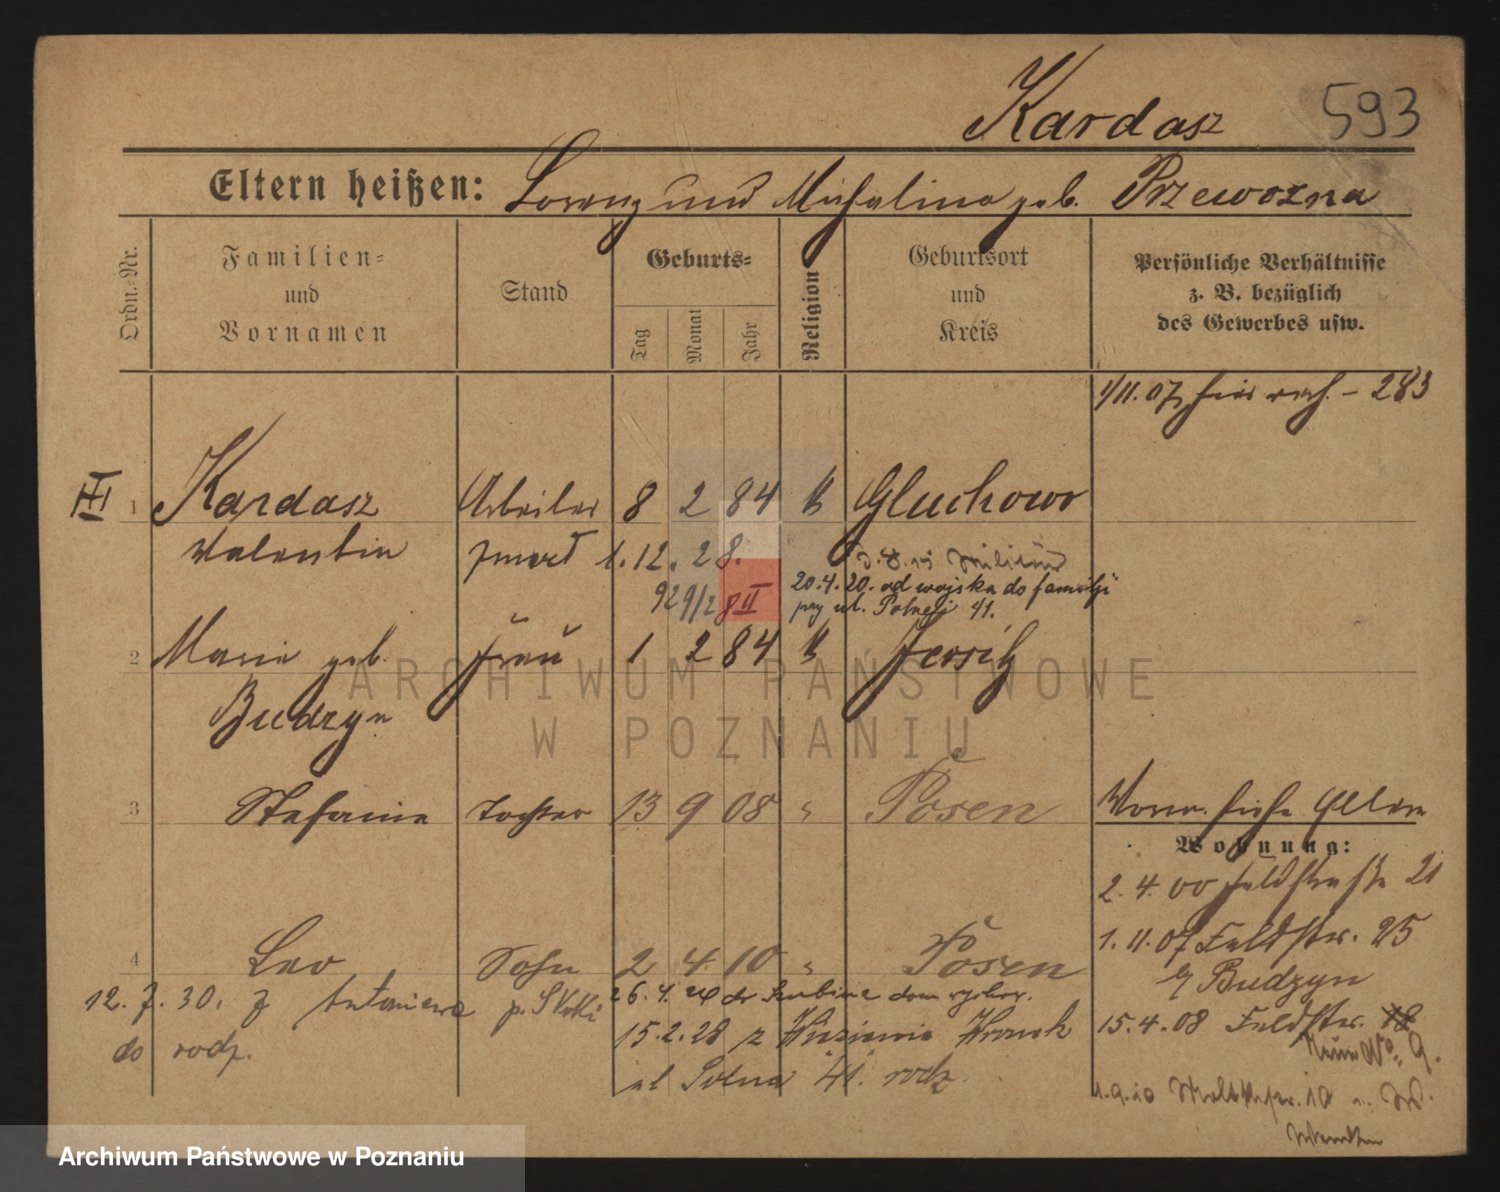 Kardasz 593
Eltern heißen: Lorenz und Michalina geb. Przewozna
Ordn.-Nr.
Familien-
und
Vornamen
Stand
Geburts-
Tag
Monat
Jahr
Religion
Geburtsort
und
Kreis
Persönliche Verhältnisse
z. B. bezüglich
des Gewerbes usw.
1/11.07 283
III 1 Kardasz Arbeiter 8 2 84 k Gluchowo
Valentin zmarł 1.12.28.
20.4.20. od wojska do familji
92 9/2 8 II
przy ul. Polnej 41.
2 Marie geb. Frau 1 2 84 k Jersitz
Budzyn
3 Stefanie Tochter 13 9 08 " Posen
Wohnung:
2.4.00 Feldstraße 21
1.11.07 Feldstr. 25
4 Leo Sohn 2 4 10 " Posen
b/ Budzyn
12.7.30. z Antoniewa
do rodz.
26.4.
15.2.28 z Więzienia Wronek
ul Polna 41. rodz.
15.4.08 Feldstr. 18
Neue No. 9.
1.9.10
ARCHIWUM PAŃSTWOWE
W POZNANIU
Archiwum Państwowe w Poznaniu